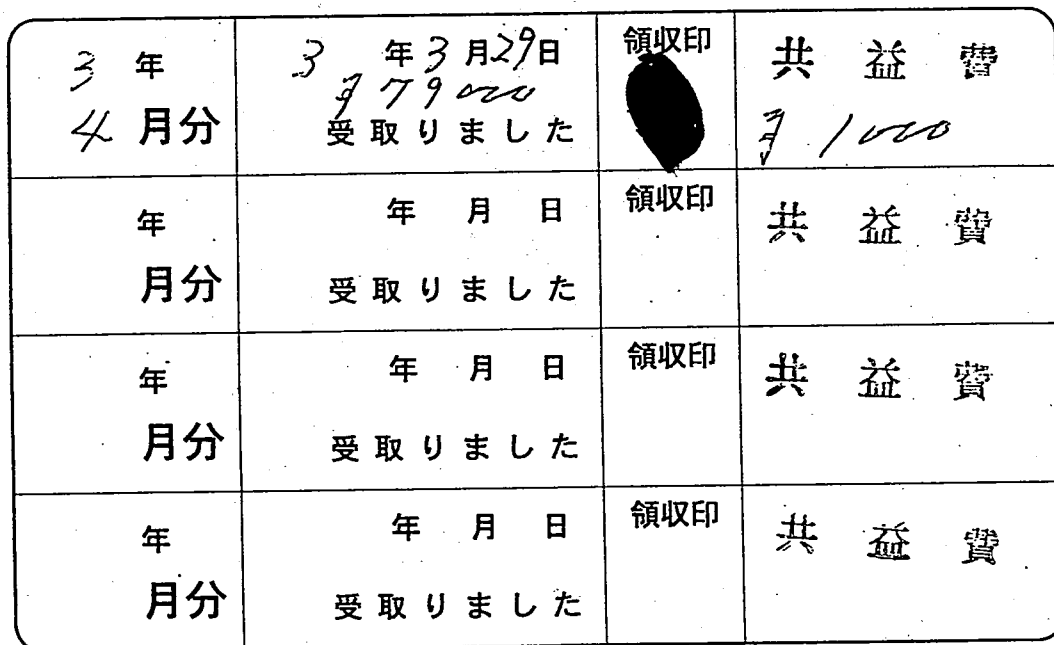 3 年
4 月分
3 年 3 月 29 日
¥79000
受取りました
領収印
共益費
¥1000
年
月分
年 月 日
受取りました
領収印
共益費
年
月分
年 月 日
受取りました
領収印
共益費
年
月分
年 月 日
受取りました
領収印
共益費